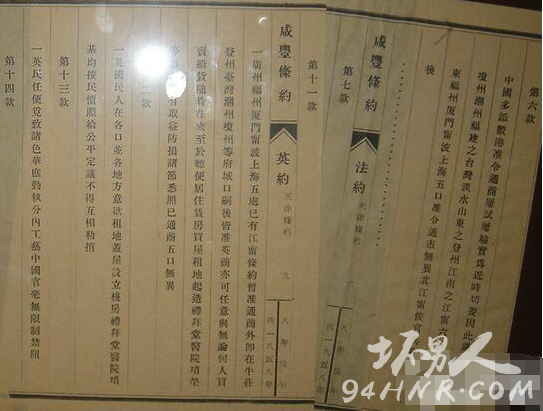 第六款
中國多添數港准令通商屢試屢驗實爲近時切要因此議
瓊州潮州福建之台灣淡水山東之登州江南之江甯六
東福州廈門甯波上海五口准令通市無異其江甯俟官
後
第七款
咸豐條約 法約 天津條約
八年戊午
四一八五八
第十一款
咸豐條約 英約 天津條約 九
八年戊午
四一八五八
一廣州福州廈門甯波上海五處已有江甯條約舊准通商外即在牛莊
登州臺灣潮州瓊州等府城口嗣後皆准英商亦可任意與無論何人買
賣船貨隨時往來至於聽便居住賃房買屋租地起造禮拜堂醫院墳塋
等 有取益防損諸節悉照已通商五口無異
二款
一英國民人在各口並各地方意欲租地蓋屋設立棧房禮拜堂醫院墳
基均按民價照給公平定議不得互相勒掯
第十三款
一英民任便覓致諸色華庶勤執分內工藝中國官毫無限制禁阻
第十四款
坏男人
94HNR.COM